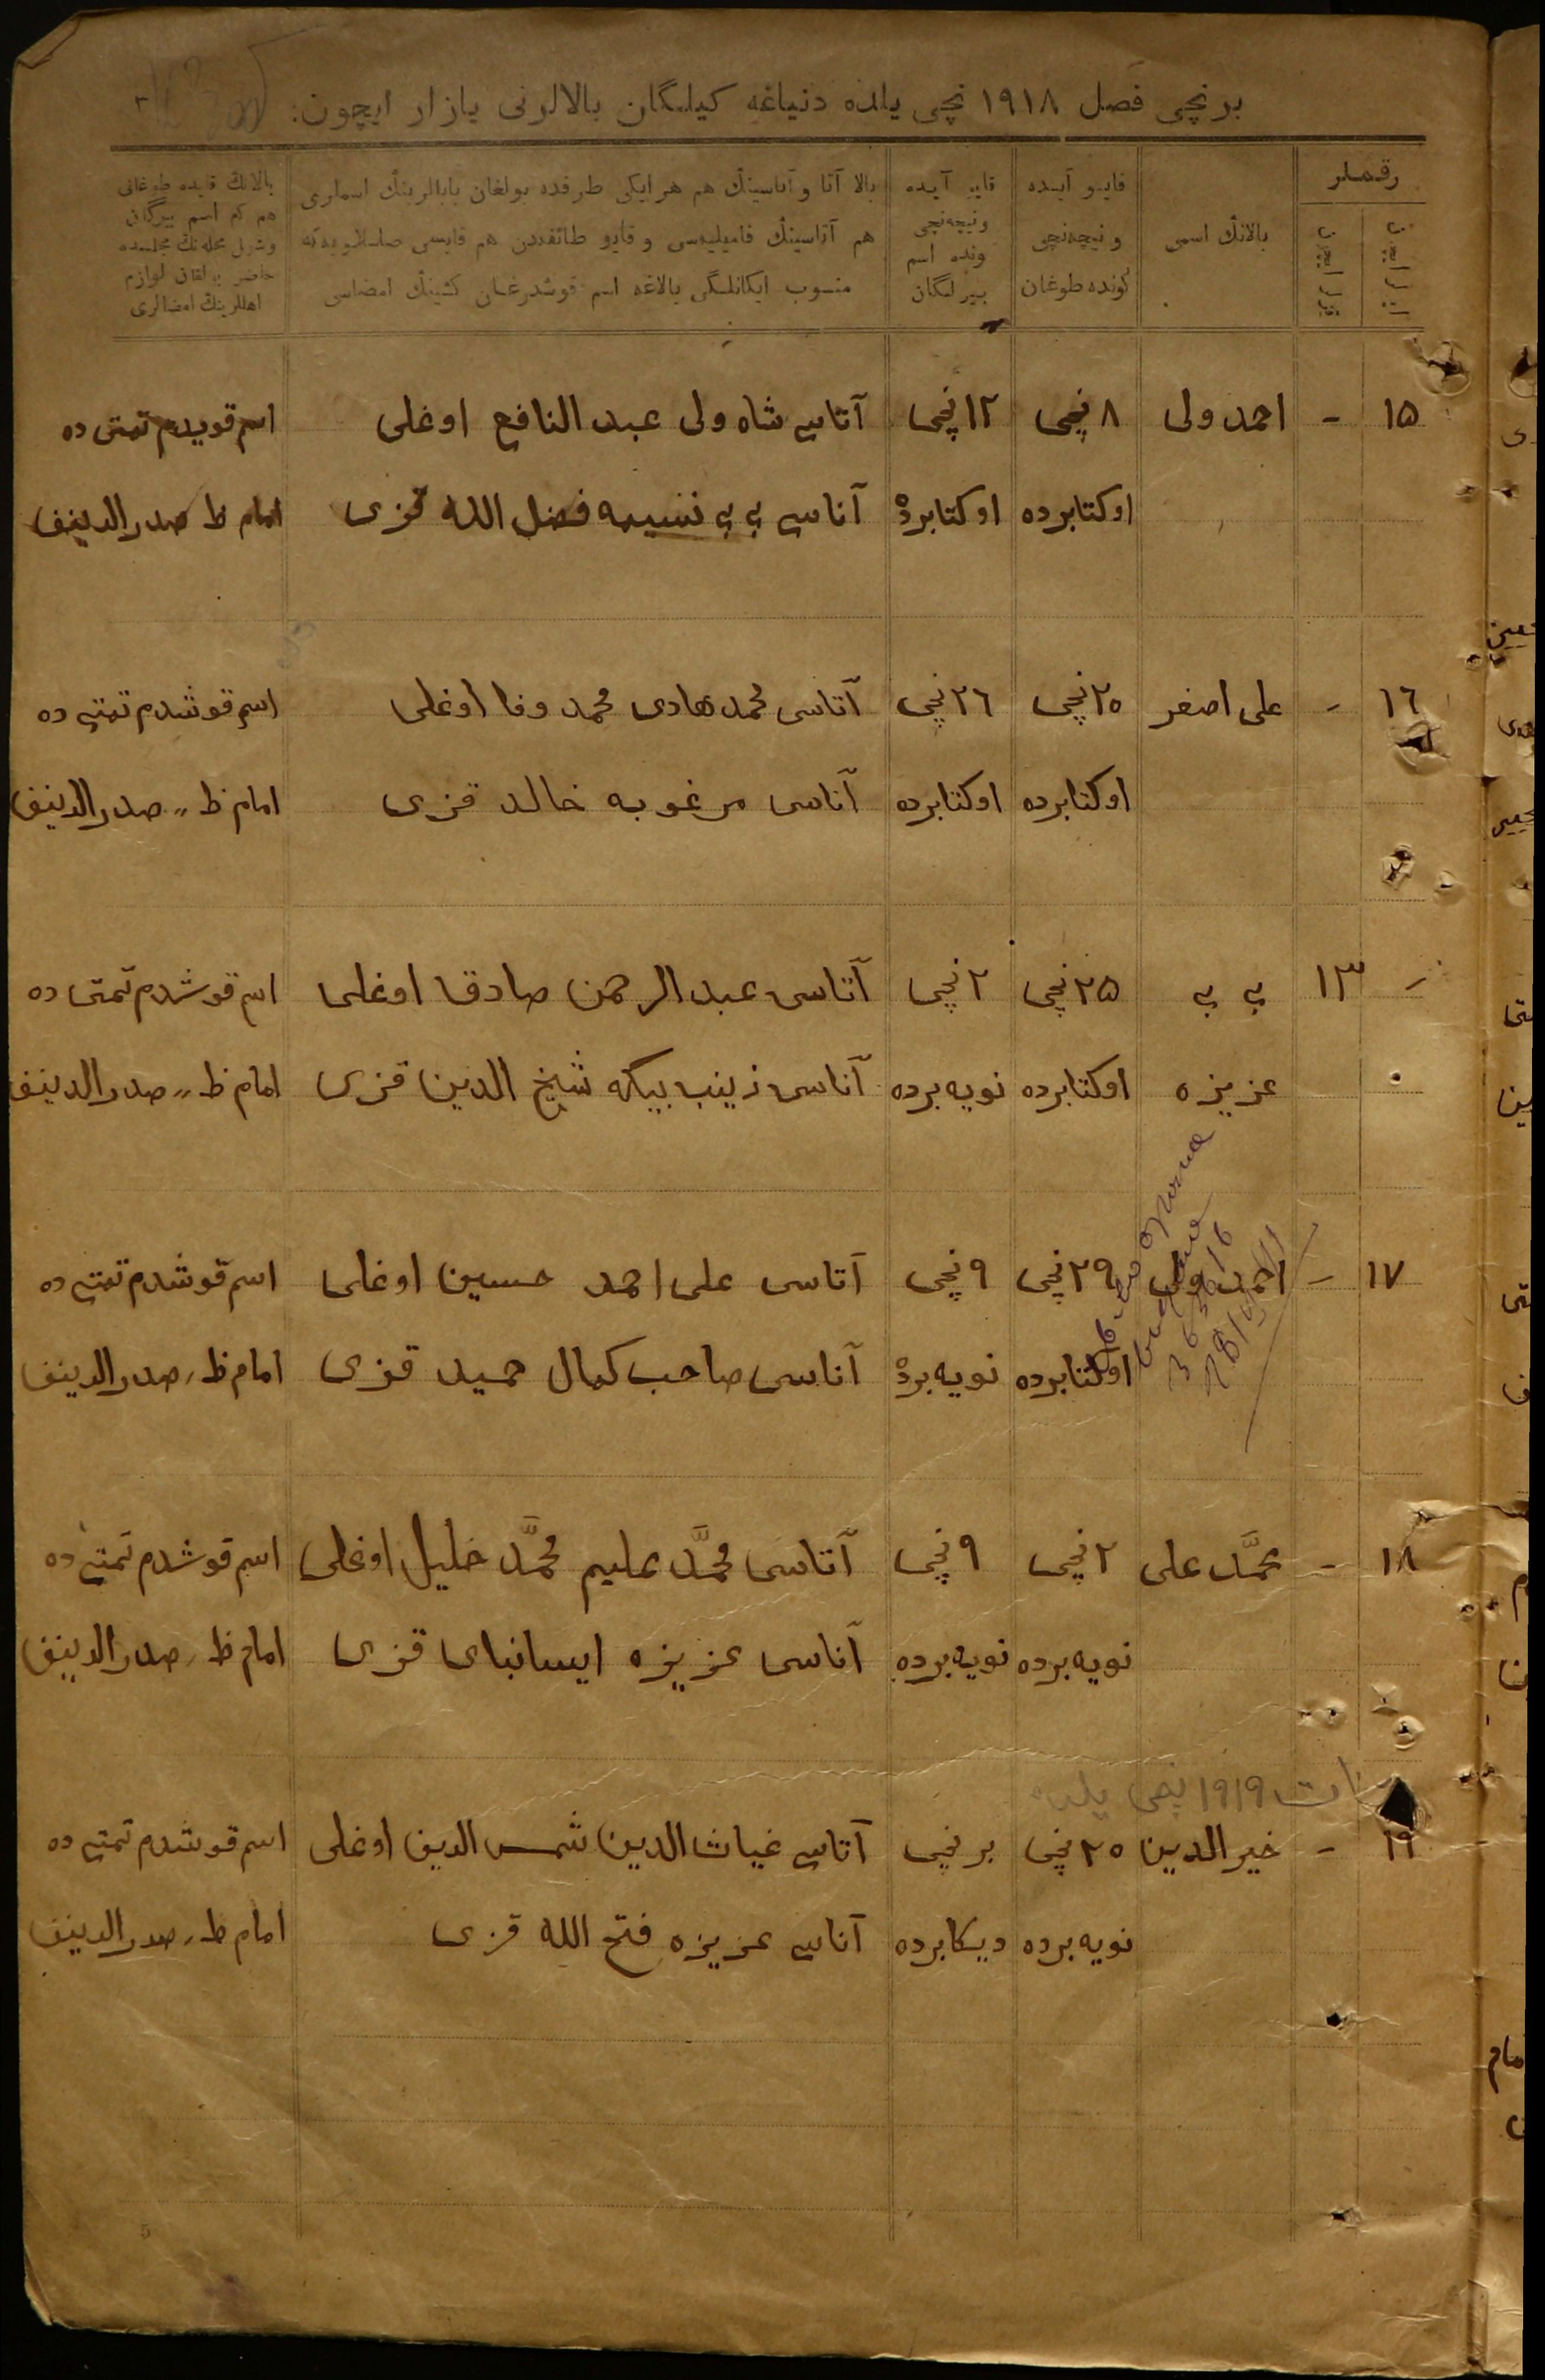 برنچی فصل ۱۹۱۸ نچی یلده دنیاغه کیلگان بالالرنی یازار ایچون:
رقملر
بالانڭ اسمی
قایو آیده
و نیچه‌نچی
کونده طوغان
قایو آیده
و نیچه‌نچی
کونده اسم
بیرلگان
بالا آتا و آناسینڭ هم هر ایکی طرفده بولغان بابالرینڭ اسملری
هم آتاسینڭ فامیلیه‌سی و قایو طائفه‌دن هم قایسی
منسوب ایکانلگی بالاغه اسم قوشدرغان کشینڭ امضاسی
بالانڭ قایده طوغانی
هم کم اسم بیرگانی
حاضر بولغان لوازم
اهللرینڭ امضالری
۱۵ - احمد ولی ۸ نچی ۱۲ نچی آتاسی شاه ولی عبد النافع اوغلی اسم قویدم تمتی ده
اوکتابرده اوکتابرده آناسی بی بی نسیمه فضل الله قزی امام ظ صدرالدینف
۱۶ - علی اصغر ۲۰ نچی ۲۶ نچی آتاسی محمد هادی محمد وفا اوغلی اسم قوشدم تمتی ده
اوکتابرده اوکتابرده آناسی مرغوبه خالد قزی امام ظ صدرالدینف
- ۱۳ بی بی ۲۵ نچی ۲ نچی آتاسی عبد الرحمن صادق اوغلی اسم قوشدم تمتی ده
عزیزه اوکتابرده نویه‌برده آناسی زینب بیکه شیخ الدین قزی امام ظ صدرالدینف
۱۷ - احمد ولی ۲۹ نچی ۹ نچی آتاسی علی احمد حسین اوغلی اسم قوشدم تمتی ده
اوکتابرده نویه‌برده آناسی صاحب کمال حمید قزی امام ظ صدرالدینف
۱۸ - محمَّد علی ۲ نچی ۹ نچی آتاسی محمَّد علیم محمَّد خلیل اوغلی اسم قوشدم تمتی ده
نویه‌برده نویه‌برده آناسی عزیزه ایسانبای قزی امام ظ صدرالدینف
۱۹۱۹ نچی یلده
۱۹ - خیر الدین ۲۰ نچی برنچی آتاسی غیاث الدین شمس الدین اوغلی اسم قوشدم تمتی ده
نویه‌برده دیکابرده آناسی عزیزه فتح الله قزی امام ظ صدرالدینف
5